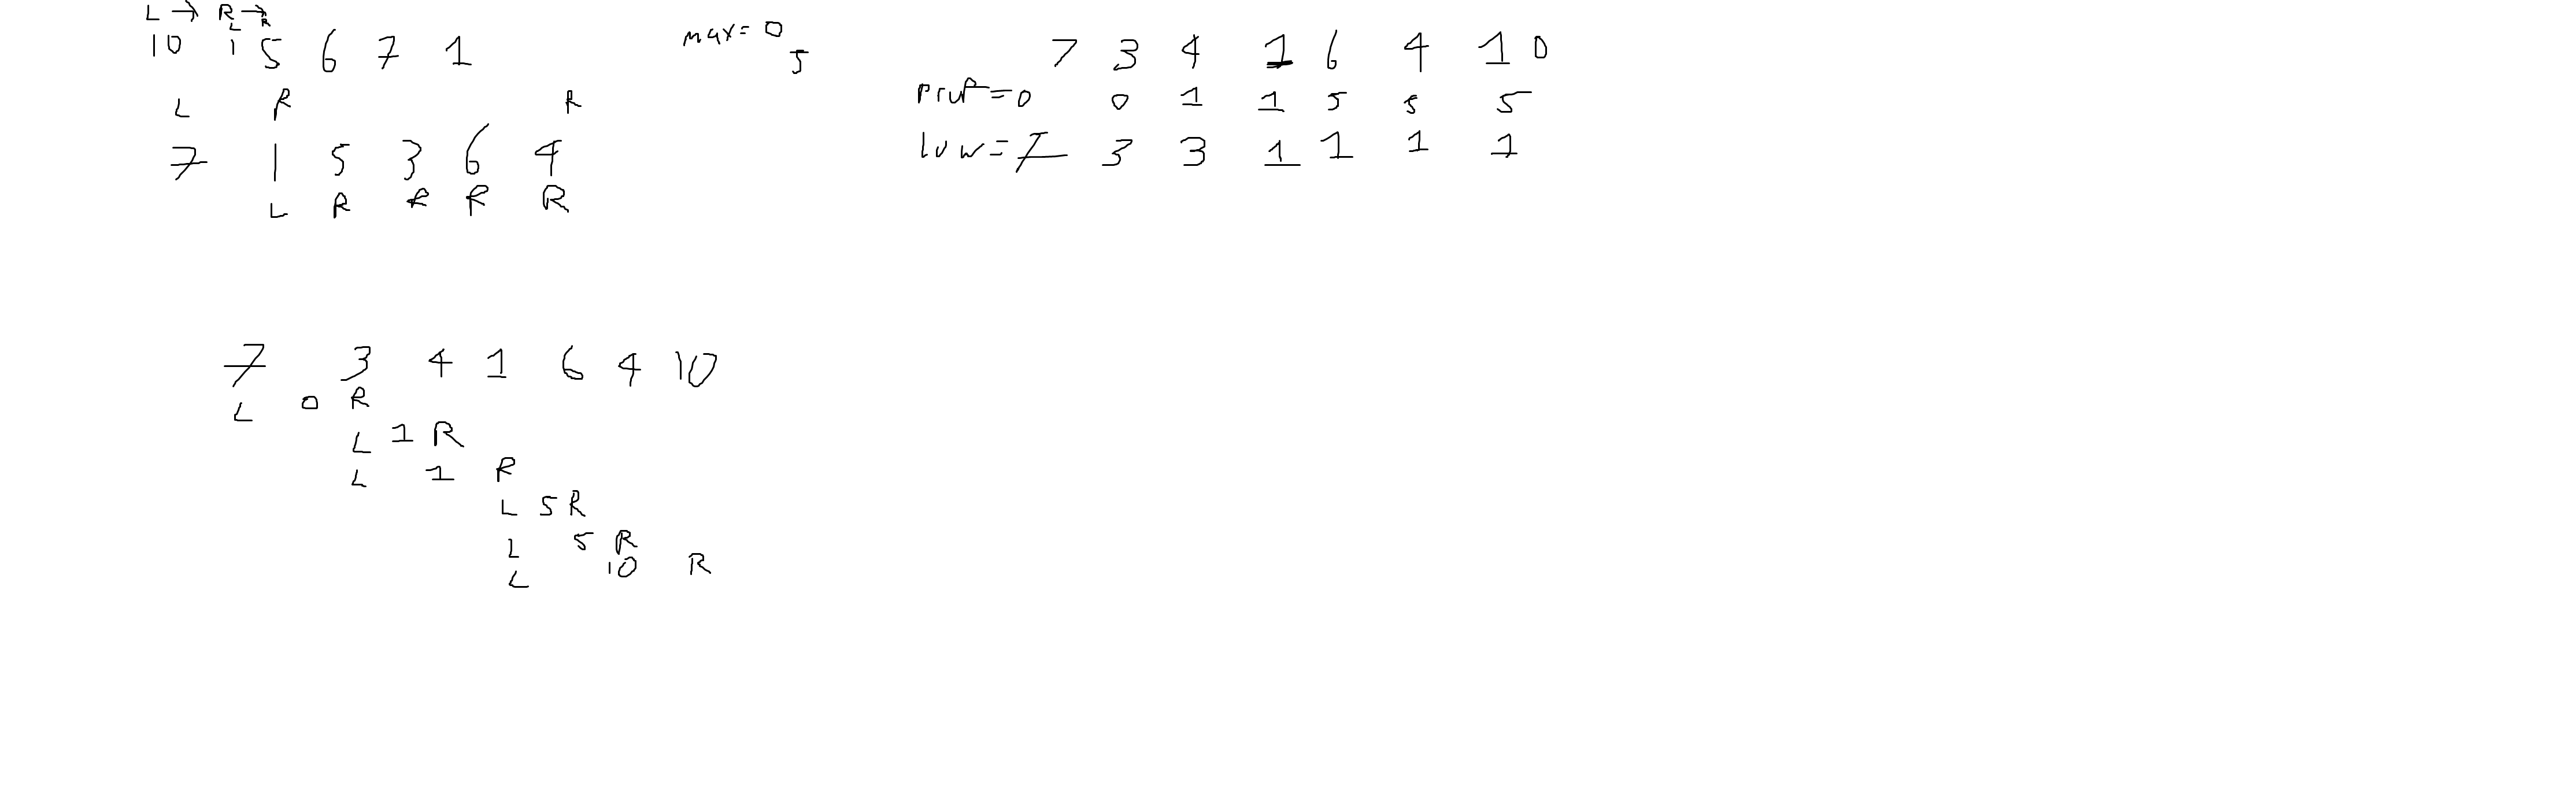 L → R →
L R
10 1 5 6 7 1
L R R
7 1 5 3 6 4
L R R R R
max= 0
5
7 3 4 1 6 4 10
prof=0 0 1 1 5 5 5
low=7 3 3 1 1 1 1
7 3 4 1 6 4 10
L 0 R
L 1 R
L 1 R
L 5 R
L 5 R
L 10 R